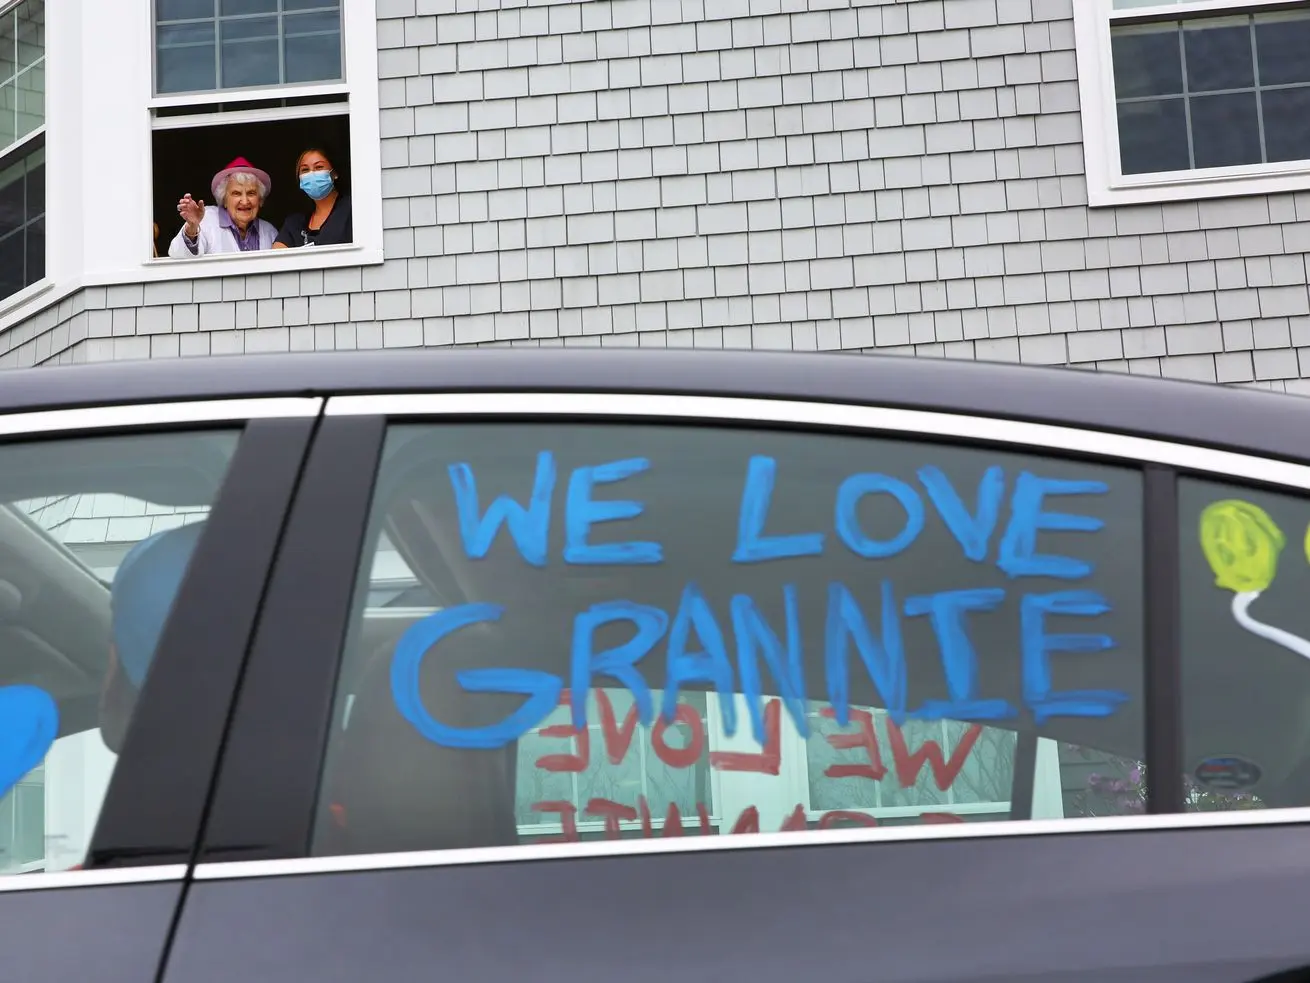 WE LOVE
GRANNIE
WE LOVE
GRANNIE